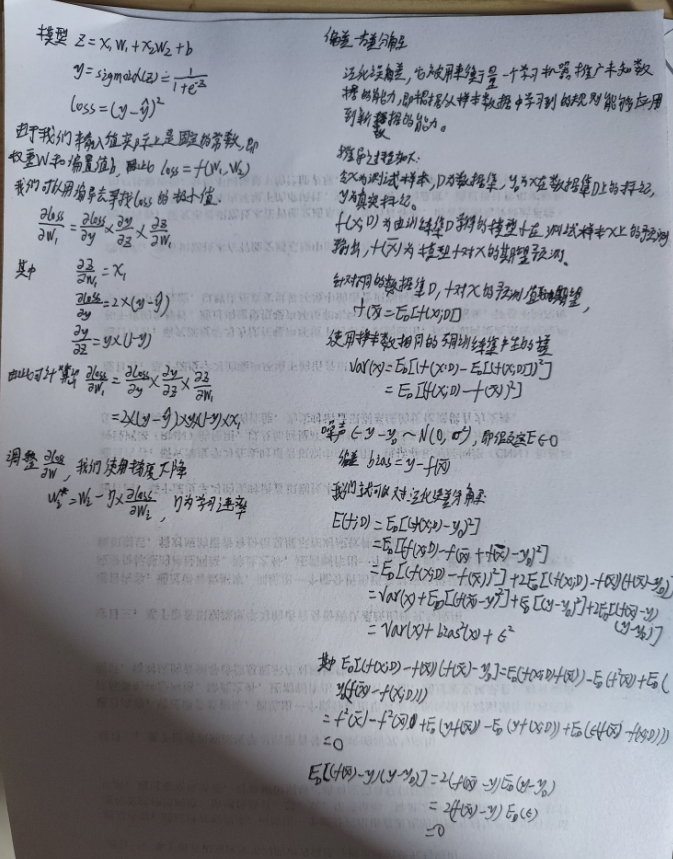 模型 z = x₁w₁ + x₂w₂ + b
y = sigmoid(z) = 1/(1+e^-z)
loss = (y-ŷ)²
由于我们输入值实际上是固定的常数,即
权重W和偏置值b, 因此 loss = f(w₁, w₂)
我们可以用偏导去寻找loss的极小值.
∂loss/∂w₁ = ∂loss/∂y × ∂y/∂z × ∂z/∂w₁
其中 ∂z/∂w₁ = x₁
∂loss/∂y = 2×(y-ŷ)
∂y/∂z = y×(1-y)
由此可计算 ∂loss/∂w₁ = ∂loss/∂y × ∂y/∂z × ∂z/∂w₁
= 2×(y-ŷ)×y×(1-y)×x₁
调整 ∂loss/∂w, 我们使用梯度下降
w₂* = w₂ - η×∂loss/∂w₂, η为学习速率
偏差-方差分解
泛化误差, 它被用来衡量一个学习机器推广未知数
据的能力,即根据从样本数据中学习到的规则能够应用
到新数据的能力。
推导过程如下:
令x为测试样本, D为数据集, y_D为x在数据集D上的标记,
y为真实标记。
f(x;D)为由训练集D学得的模型f在测试样本x上的预测
输出, f(x̄)为模型f对x的期望预测。
针对不同的数据集D, f对x的预测值期望,
f(x̄) = E_D[f(x;D)]
使用样本数相同的不同训练集产生的
Var(x) = E_D[(f(x;D) - E_D[f(x;D)])²]
= E_D[(f(x;D) - f(x̄))²]
噪声 ∈ = y - y_D ~ N(0, σ²), 即假定 E ∈ 0
偏差 bias = y - f(x̄)
我们就可以对泛化误差分解
E(f;D) = E_D[(f(x;D) - y_D)²]
= E_D[(f(x;D) - f(x̄) + f(x̄) - y_D)²]
= E_D[(f(x;D) - f(x̄))²] + 2E_D[(f(x;D) - f(x̄))(f(x̄) - y_D)]
= Var(x) + E_D[(f(x̄) - y)²] + E_D[(y - y_D)²] + 2E_D[(f(x̄) - y)(y - y_D)]
= Var(x) + bias²(x) + ε²
其中 E_D[(f(x;D) - f(x̄))(f(x̄) - y_D)] = E_D(f(x;D)f(x̄)) - E_D(f²(x̄)) + E_D(
y(f(x̄) - f(x;D)))
= f²(x̄) - f²(x̄) + E_D(yf(x̄)) - E_D(yf(x;D)) + E_D(ε(f(x̄) - f(x;D)))
= 0
E_D[(f(x̄) - y)(y - y_D)] = 2(f(x̄) - y)E_D(y - y_D)
= 2(f(x̄) - y)E_D(ε)
= 0